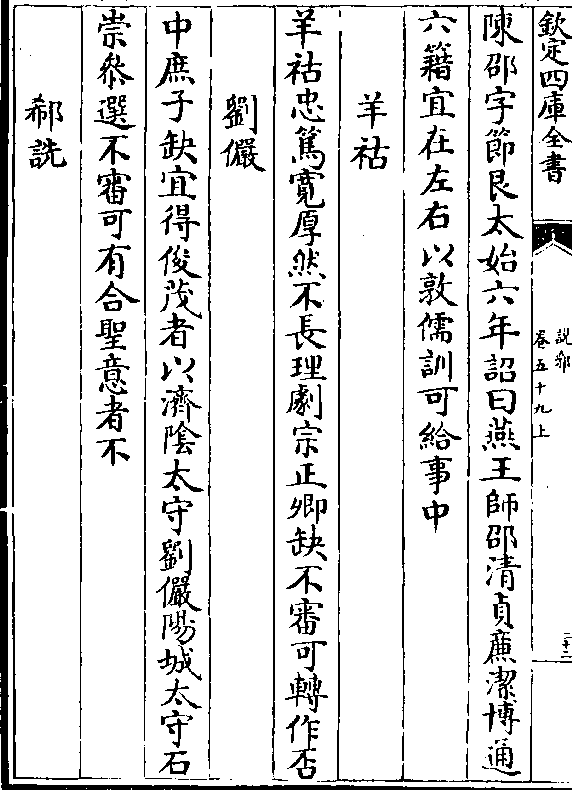 欽定四庫全書
說郛
卷五十九上
二十二
陳邵字節艮太始六年詔曰燕王師邵清貞亷潔博通
六籍宜在左右以敦儒訓可給事中
羊祜
羊祜忠篤寛厚然不長理劇宗正卿缺不審可轉作否
劉儼
中庶子缺宜得俊茂者以濟隂太守劉儼陽城太守石
崇叅選不審可有合聖意者不
郗詵